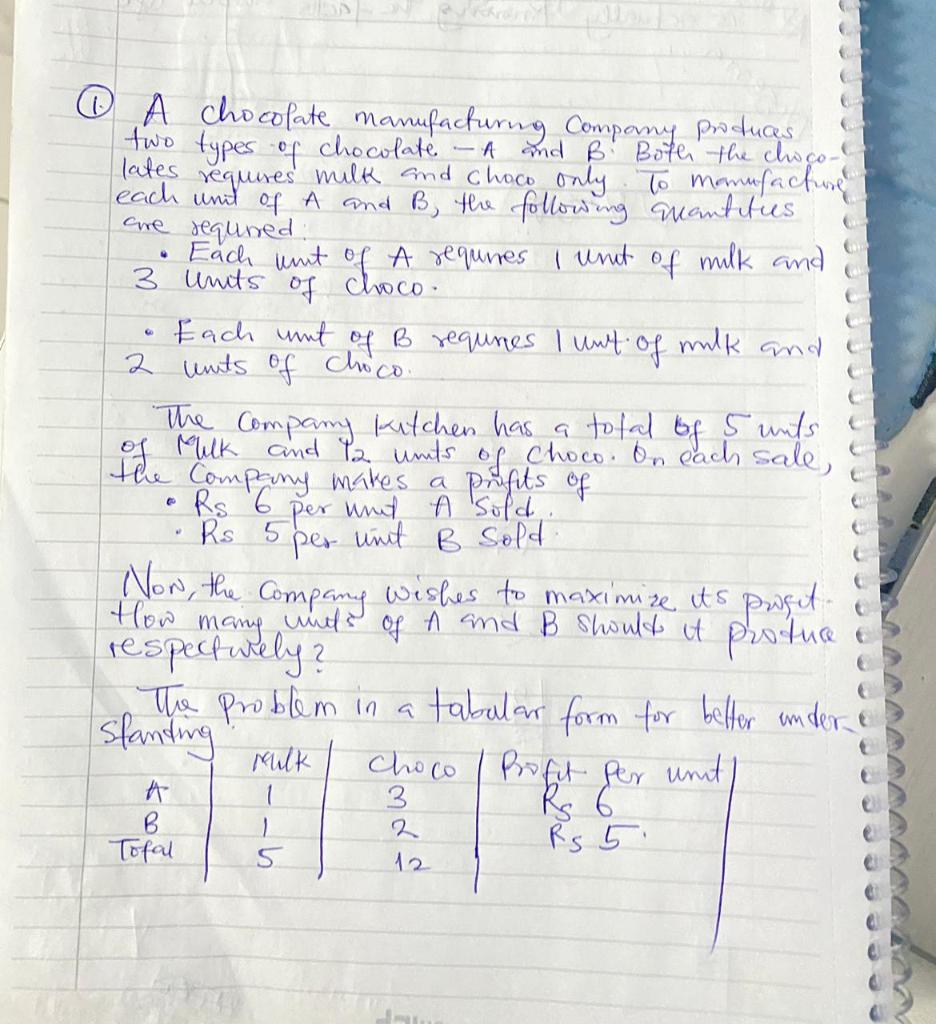 ① A chocolate manufacturing Company produces
two types of chocolate – A and B. Both the choco-
lates requires milk and choco only. To manufacture
each unit of A and B, the following quantities
are required:
• Each unit of A requires 1 unit of milk and
3 units of choco.
• Each unit of B requires 1 unit of milk and
2 units of choco.
The Company kitchen has a total of 5 units
of Milk and 12 units of choco. On each sale,
the Company makes a profits of
• Rs 6 per unit A sold.
• Rs 5 per unit B sold.
Now, the Company wishes to maximize its profit.
How many units of A and B should it produce
respectively?
The problem in a tabular form for better under-
standing
Milk Choco Profit per unit
A 1 3 Rs 6
B 1 2 Rs 5.
Total 5 12